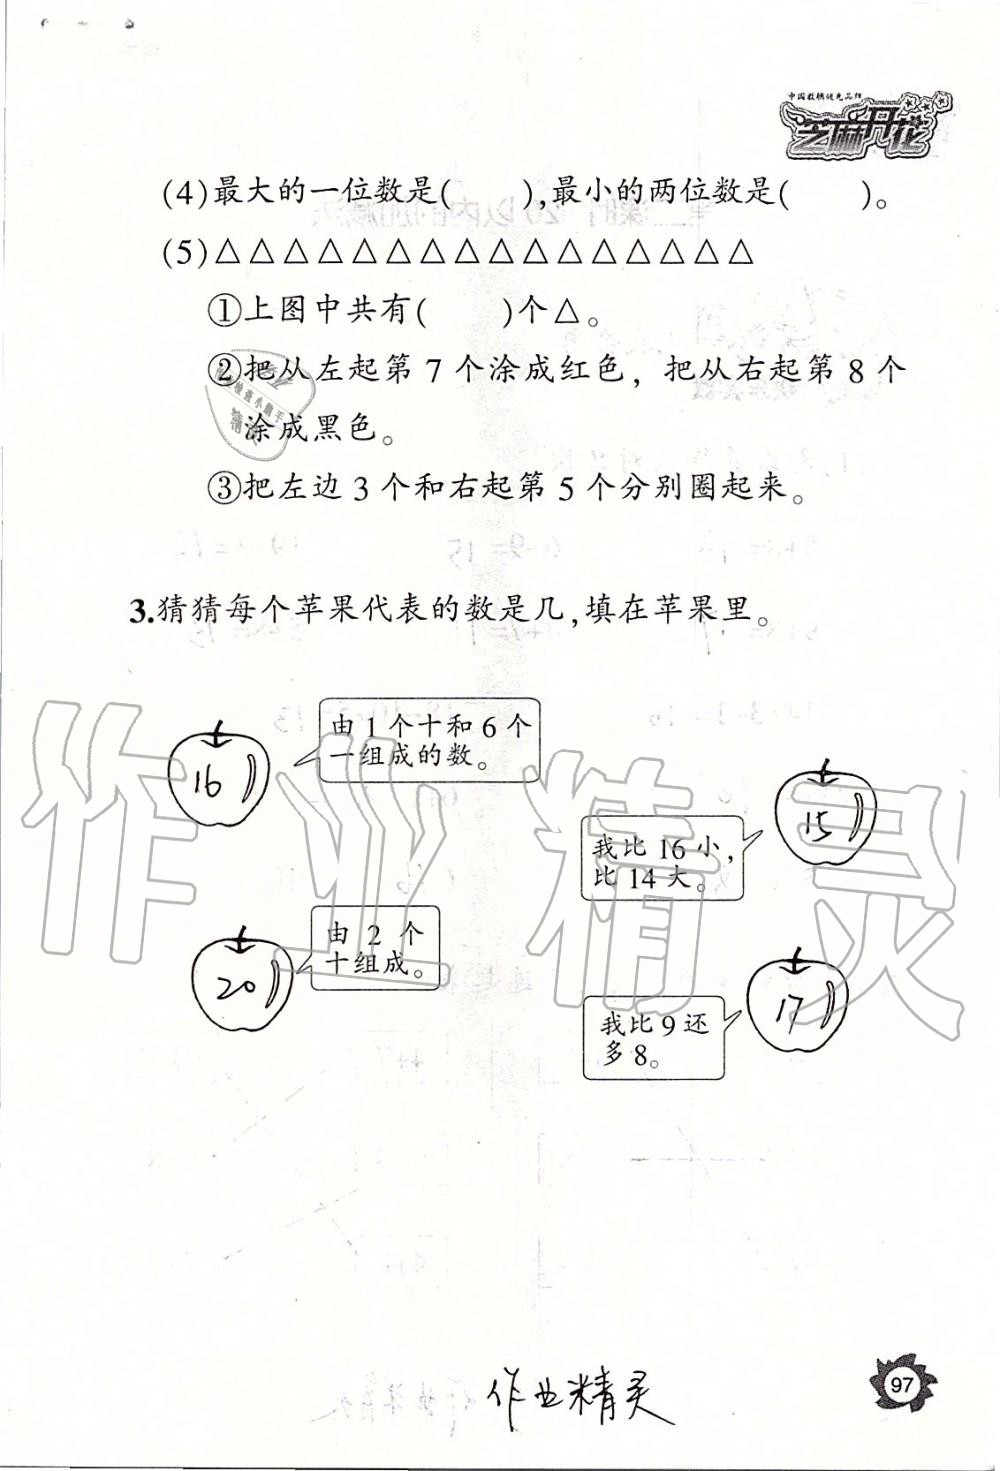 中国教辅领先品牌
芝麻开花
(4)最大的一位数是(    ),最小的两位数是(    )。
(5)△△△△△△△△△△△△△△△△△
①上图中共有(    )个△。
②把从左起第7个涂成红色，把从右起第8个
涂成黑色。
③把左边3个和右起第5个分别圈起来。
3.猜猜每个苹果代表的数是几,填在苹果里。
16
由1个十和6个
一组成的数。
15
我比16小,
比14大。
20
由2个
十组成。
17
我比9还
多8。
作业精灵
作业精灵
97